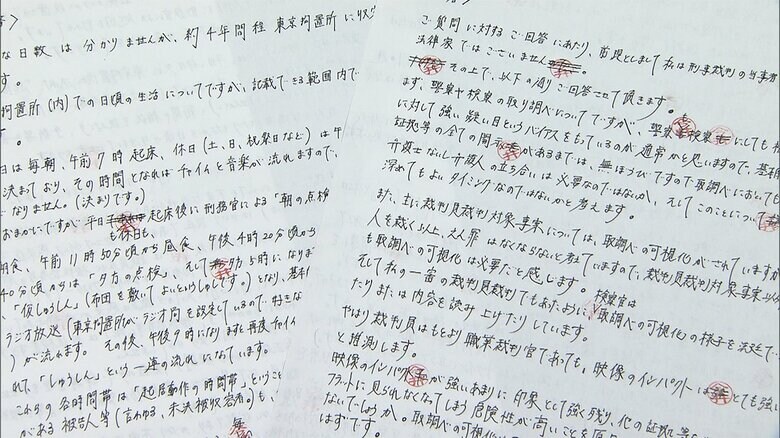 な日数は分かりませんが、約4年間程東京拘置所に収
す。
拘置所(内)での日頃の生活についてですが、記載できる範囲内で
日は毎朝、午前7時起床、休日(土、日、祝祭日など)は午
決まっており、その時間となればチャイムと音楽が流れますので、
なりません。(決まりです。)
おまかにですが平日も休日も、起床後に刑務官による「朝の点検
朝食、午前11時50分頃から昼食、午後4時20分頃から
40分頃からは「夕方の点検」、そして夕方5時になりま
、「仮しゅうしん」(布団を敷いてよいというしらせです。)となり、基本
ラジオ放送(東京拘置所がラジオ局を設定しているので好きな
)が流れます。その後、午後9時になりますと再度チャイ
れて、「しゅうしん」という一連の流れになっています。
これらの各時間帯は「起居動作の時間帯」ということ
がある被告人等(言わゆる、未決被収容者。)も、
ご質問に対するご回答にあたり、前提としまして私は刑事裁判の当事者
法律家ではございません。
その上で、以下の通りご回答させて頂きます。
まず、警察や検察の取り調べについてですが、警察 検察 にしても
に対して強い疑い目というバイアスをもっているのが通常かと思いますので、基本
証拠等の全ての開示 があるまでは、無 ですので取調べにおいても
弁護士ないし弁護人の立ち合いは必要なのではないか、そしてこのことについて
深めてもよいタイミングなのではないかと考えます。
また、主に裁判員裁判対象事案については、取調べの可視化がされていますが
人を裁く以上、えん罪はなくならないと考えていますので、裁判員裁判対象事案以
も取調べの可視化は必要だと感じます。
そして私の一審の裁判員裁判でもあたように、検察官は取調べの可視化の様子を法廷で
たりまたは内容を読み上げたりしています。
やはり裁判員はもとより職業裁判官であっても、映像のインパクトは とても強い
と推測します。
映像のインパクト が強いあまりに印象として強く残り、他の証拠等
フラットに見られなくなってしまう危険性が高いことを
ないでしょうか。取調べの可視化
はずです。